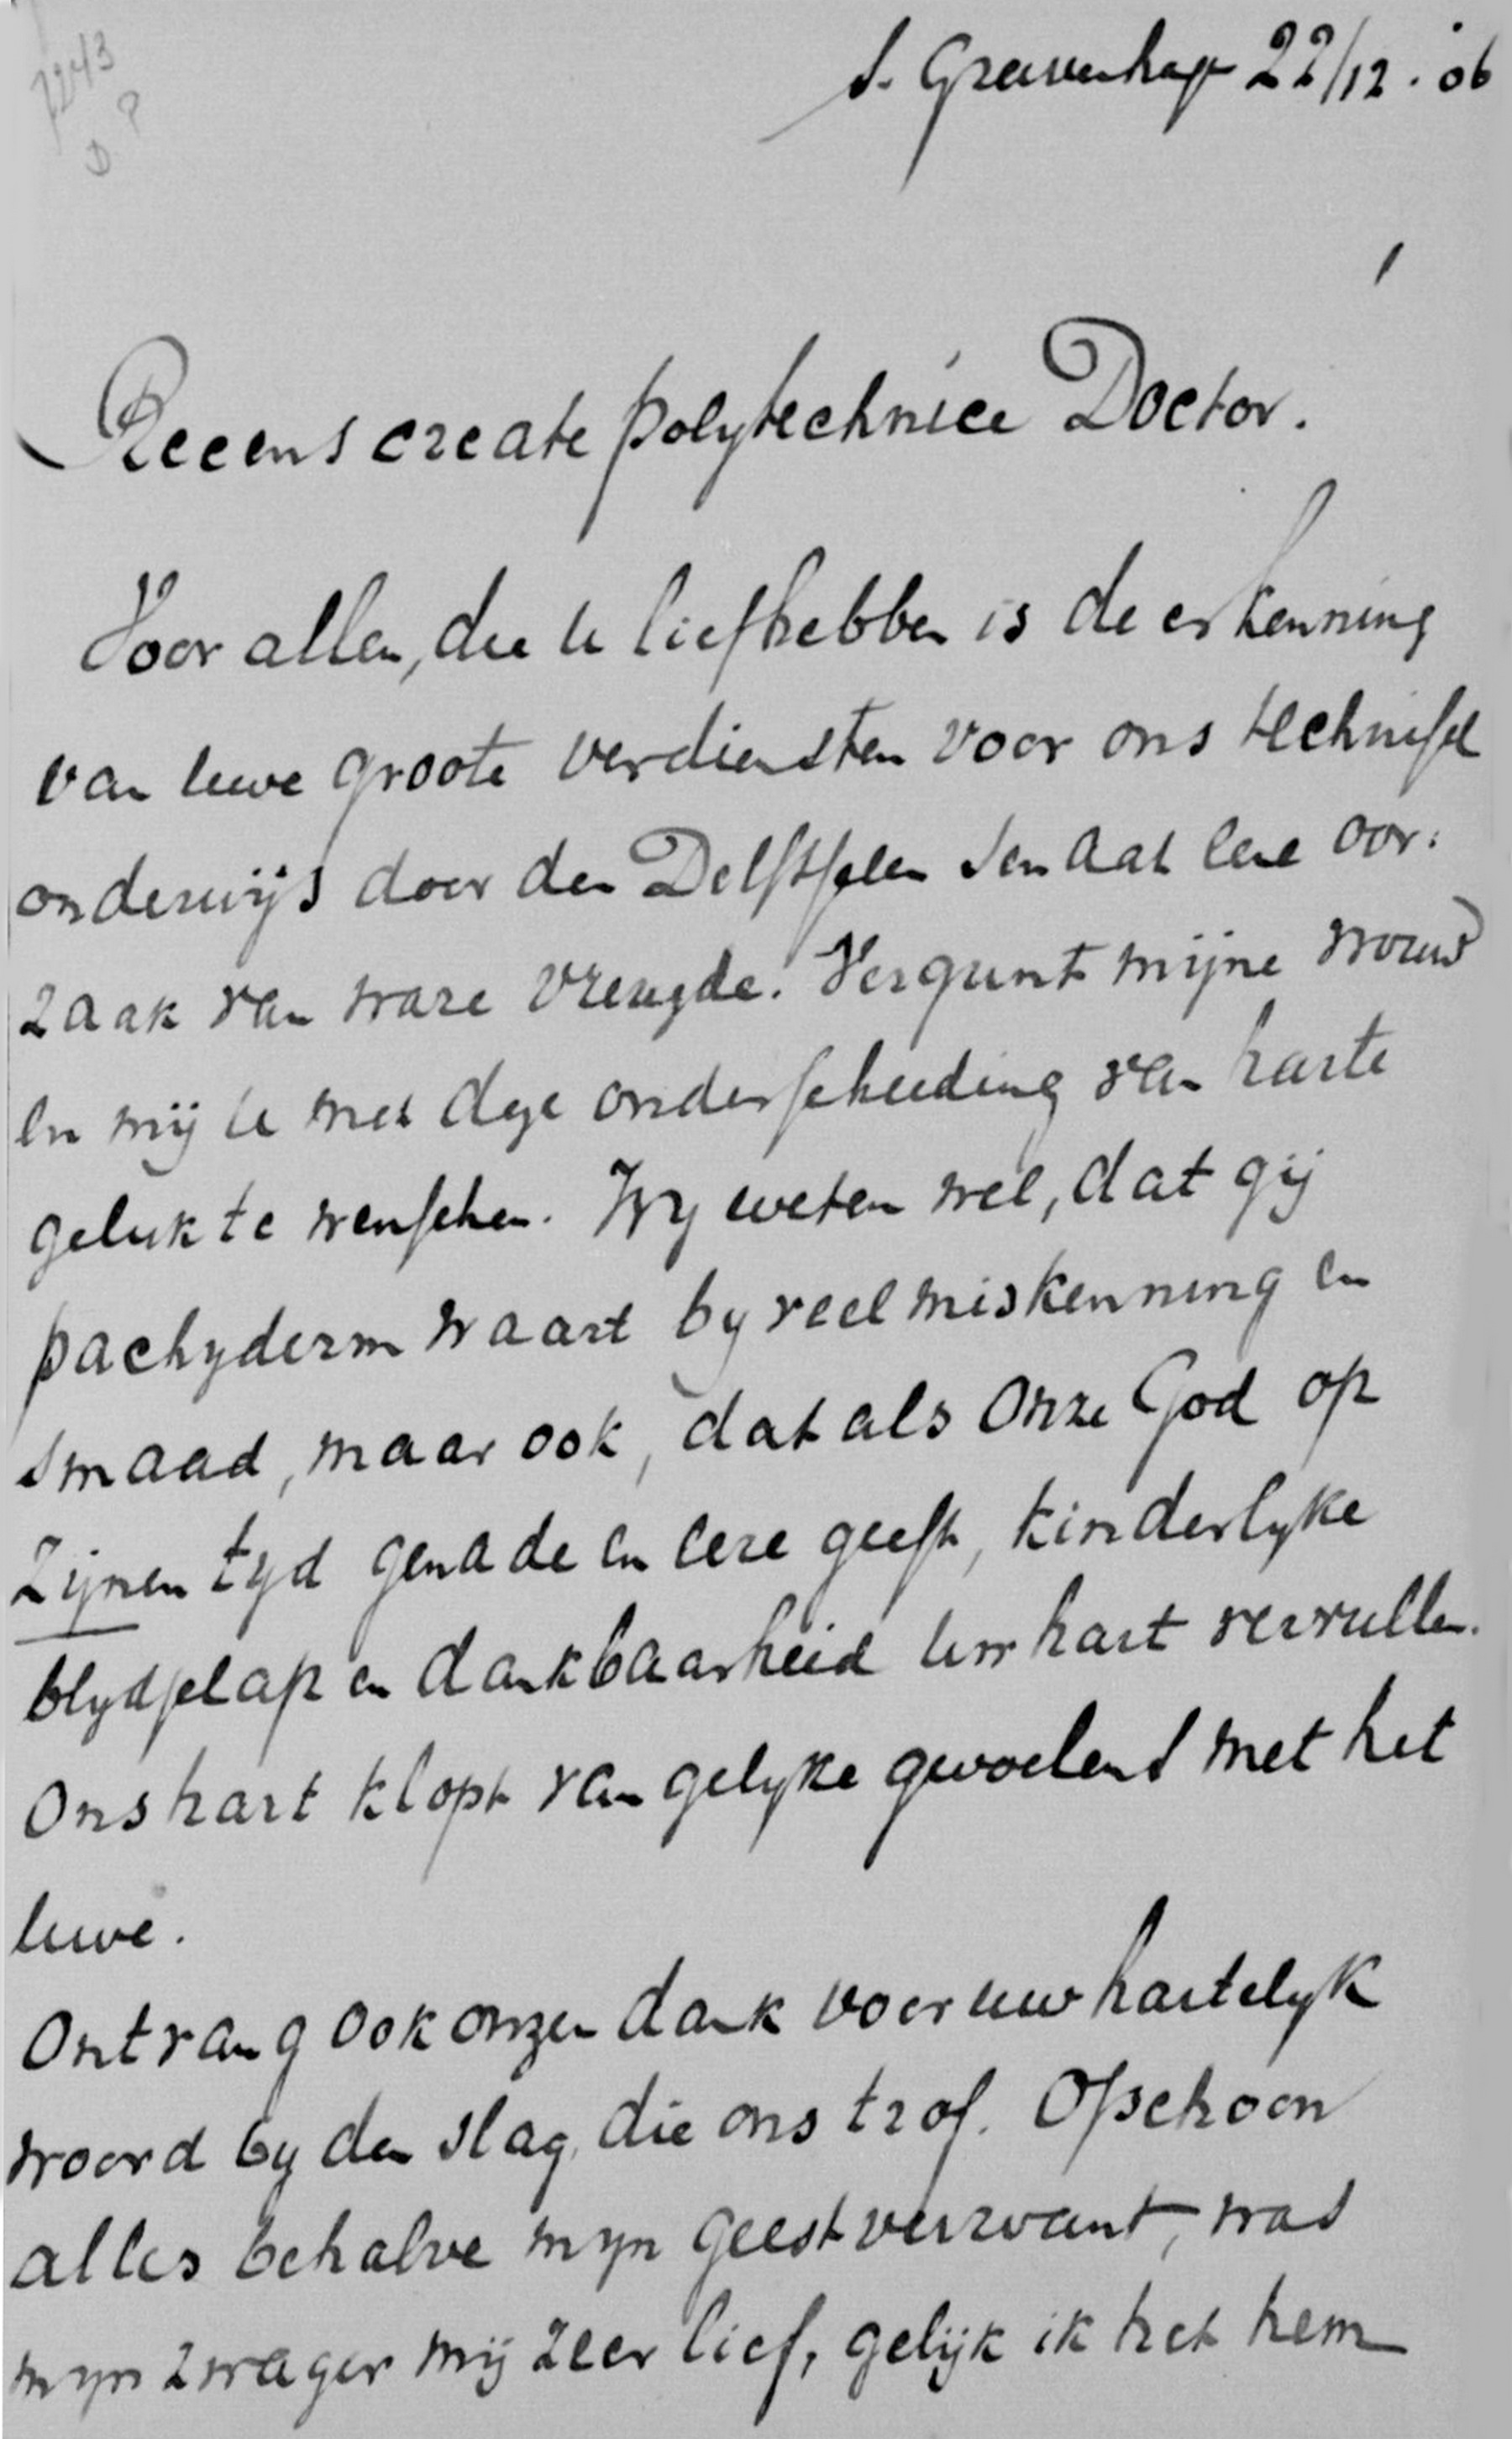 7243
D ?
s. Gravenhage 22/12. '06
Recens create polytechnice Doctor.
Voor allen, die U liefhebben is de erkenning
van Uwe groote verdiensten voor ons technisch
onderwijs door den Delftschen Senaat eene oor:
zaak van ware vreugde. Vergunt mijne vrouw
en mij U met deze onderscheiding van harte
geluk te wenschen. Wy weten wel, dat gij
pachyderm waart by veel miskenning en
smaad, maar ook, dat als Onze God op
Zijnen tyd genade en eere geeft, kinderlyke
blydschap en dankbaarheid Uw hart vervullen.
Ons hart klopt van gelyke gevoelens met het
Uwe.
Ontvang ook onzen dank voor uw hartelyk
woord by den slag, die ons trof. Ofschoon
alles behalve myn geestverwant, was
myn zwager mij zeer lief, gelijk ik het hem